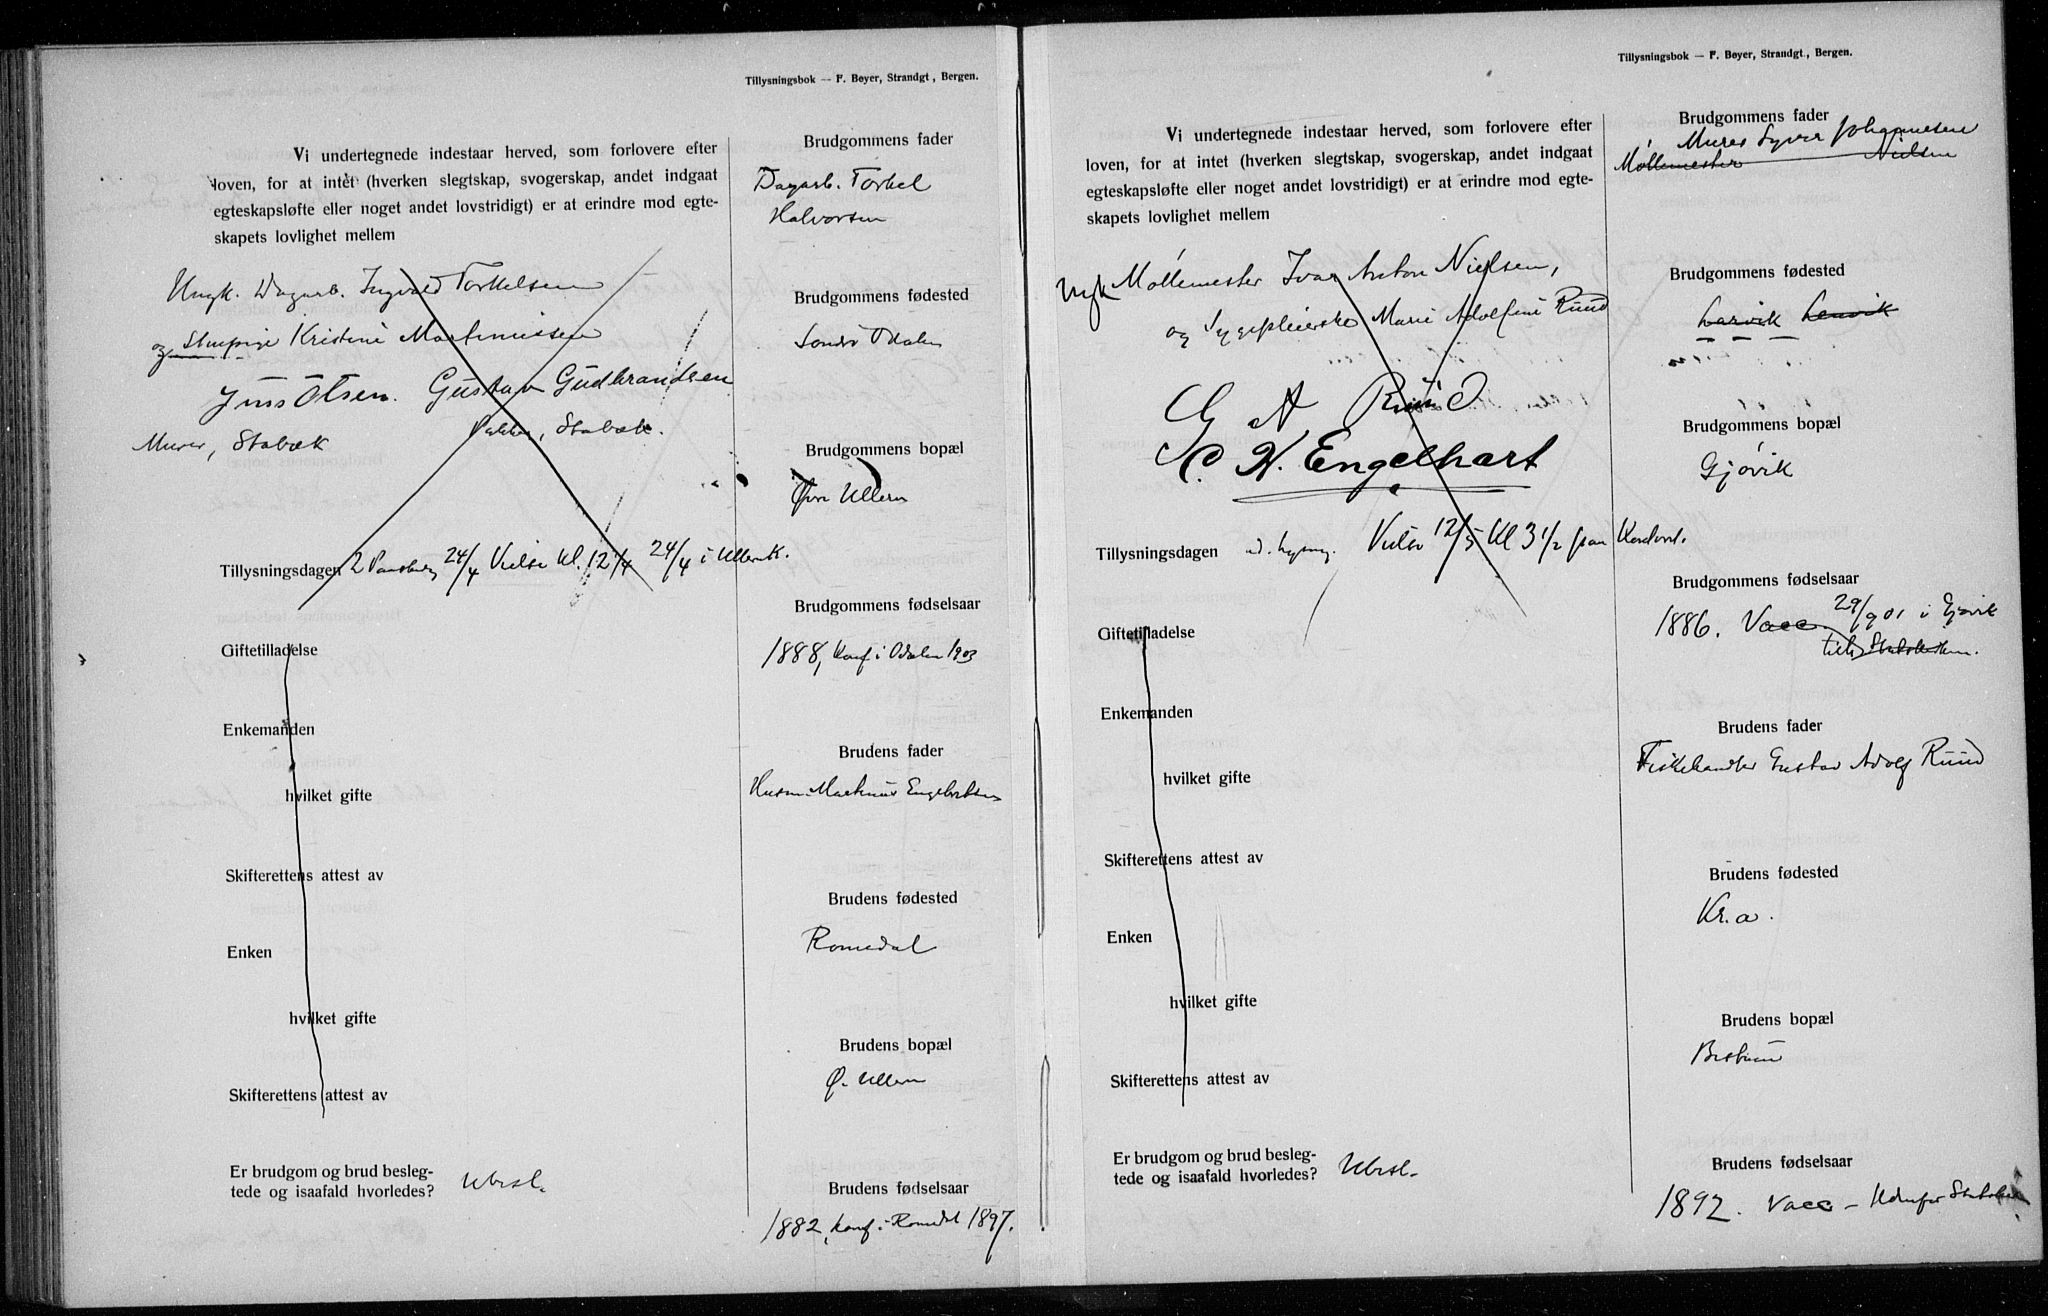 Tillysningsbok — F. Beyer, Strandgt., Bergen.
Vi undertegnede indestaar herved, som forlovere efter
loven, for at intet (hverken slegtskap, svogerskap, andet indgaat
egteskapsløfte eller noget andet lovstridigt) er at erindre mod egte-
skapets lovlighet mellem
Ungk. Dagarb. Ingvald Torkelsen
og Kristine Martinussen
Jens Olsen. Gustav Gudbrandsen
Murer, Stabæk , Stabæk.
Tillysningsdagen 24/4 Vielse Kl. 12 1/4 24/4 i Ullernk.
Giftetilladelse
Enkemanden
hvilket gifte
Skifterettens attest av
Enken
hvilket gifte
Skifterettens attest av
Er brudgom og brud besleg-
tede og isaafald hvorledes? Ubesl.
Brudgommens fader
Dagarb. Torkel
Halvorsen
Brudgommens fødested
Søndre Odalen
Brudgommens bopæl
Øvre Ullern
Brudgommens fødselsaar
1888, konf i Odalen 1903
Brudens fader
Husm. Martinus Engebretsen
Brudens fødested
Romedal
Brudens bopæl
Ø. Ullern
Brudens fødselsaar
1882, konf i Romedal 1897.
Tillysningsbok — F. Beyer, Strandgt., Bergen.
Vi undertegnede indestaar herved, som forlovere efter
loven, for at intet (hverken slegtskap, svogerskap, andet indgaat
egteskapsløfte eller noget andet lovstridigt) er at erindre mod egte-
skapets lovlighet mellem
Ungk Møllemester Ivar Anton Nielsen,
og Sygepleierske Marie Adolfine Ruud
G A Ruud
C. H. Engelhart
Tillysningsdagen ud. lysning. Vielse 12/5 Kl 3 1/2 paa
Giftetilladelse
Enkemanden
hvilket gifte
Skifterettens attest av
Enken
hvilket gifte
Skifterettens attest av
Er brudgom og brud besleg-
tede og isaafald hvorledes? Ubesl.
Brudgommens fader
Murer Syver Johannesen
Møllemester Nielsen
Brudgommens fødested
Larvik Lenvik
Brudgommens bopæl
Gjøvik
Brudgommens fødselsaar
1886. Vacc. 29/9 01 i Gjøvik
Brudens fader
Fiskehandler Gustav Adolf Ruud
Brudens fødested
Kr.a.
Brudens bopæl
Bestum
Brudens fødselsaar
1892. Vacc —